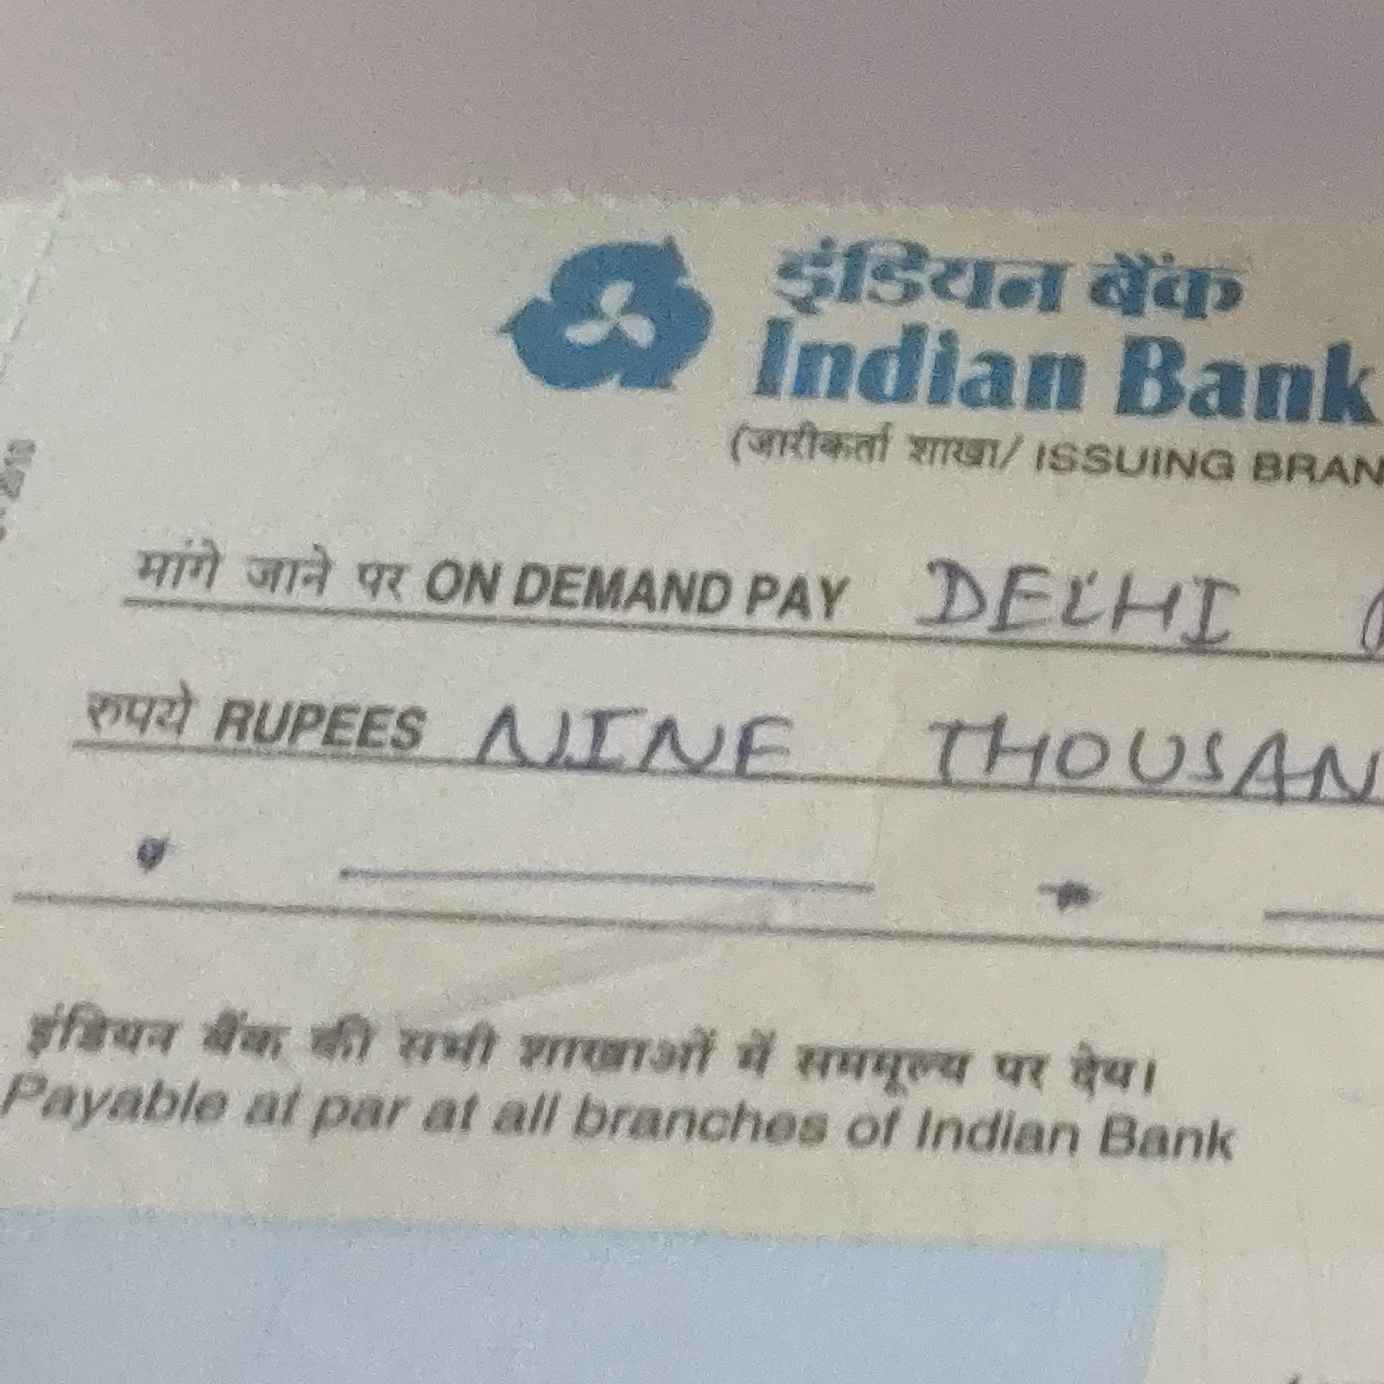 इंडियन बैंक
Indian Bank
(जारीकर्ता शाखा/ ISSUING BRAN
मांगे जाने पर ON DEMAND PAY DELHI
रुपये RUPEES NINE THOUSAN
इंडियन बैंक की सभी शाखाओं में सममूल्य पर देय।
Payable at par at all branches of Indian Bank